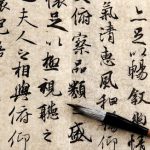 足以暢叙幽
氣清惠風和暢仰
俯察品類之盛
懷足以極視聽之
夫人之相與俯仰